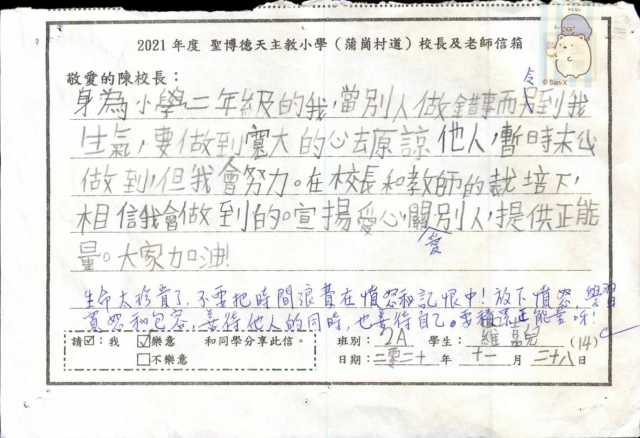 2021 年度 聖博德天主教小學（蒲崗村道）校長及老師信箱
敬愛的陳校長：
身為小學二年級的我，當別人做錯事而令到我
生氣，要做到寬大的心去原諒他人，暫時未必
做到，但我會努力。在校長和教師的栽培下，
相信我會做到的。宣揚愛心，關愛別人，提供正能
量。大家加油！
生命太珍貴了，不要把時間浪費在憤怒和記恨中！放下憤怒，學習
寬恕和包容，善待他人的同時，也善待自己。要積極正能量呀！
請☑：我 ☑樂意 和同學分享此信。 班別：2A 學生： (14)
□不樂意 日期：二零二十 年 十一 月 二十八 日